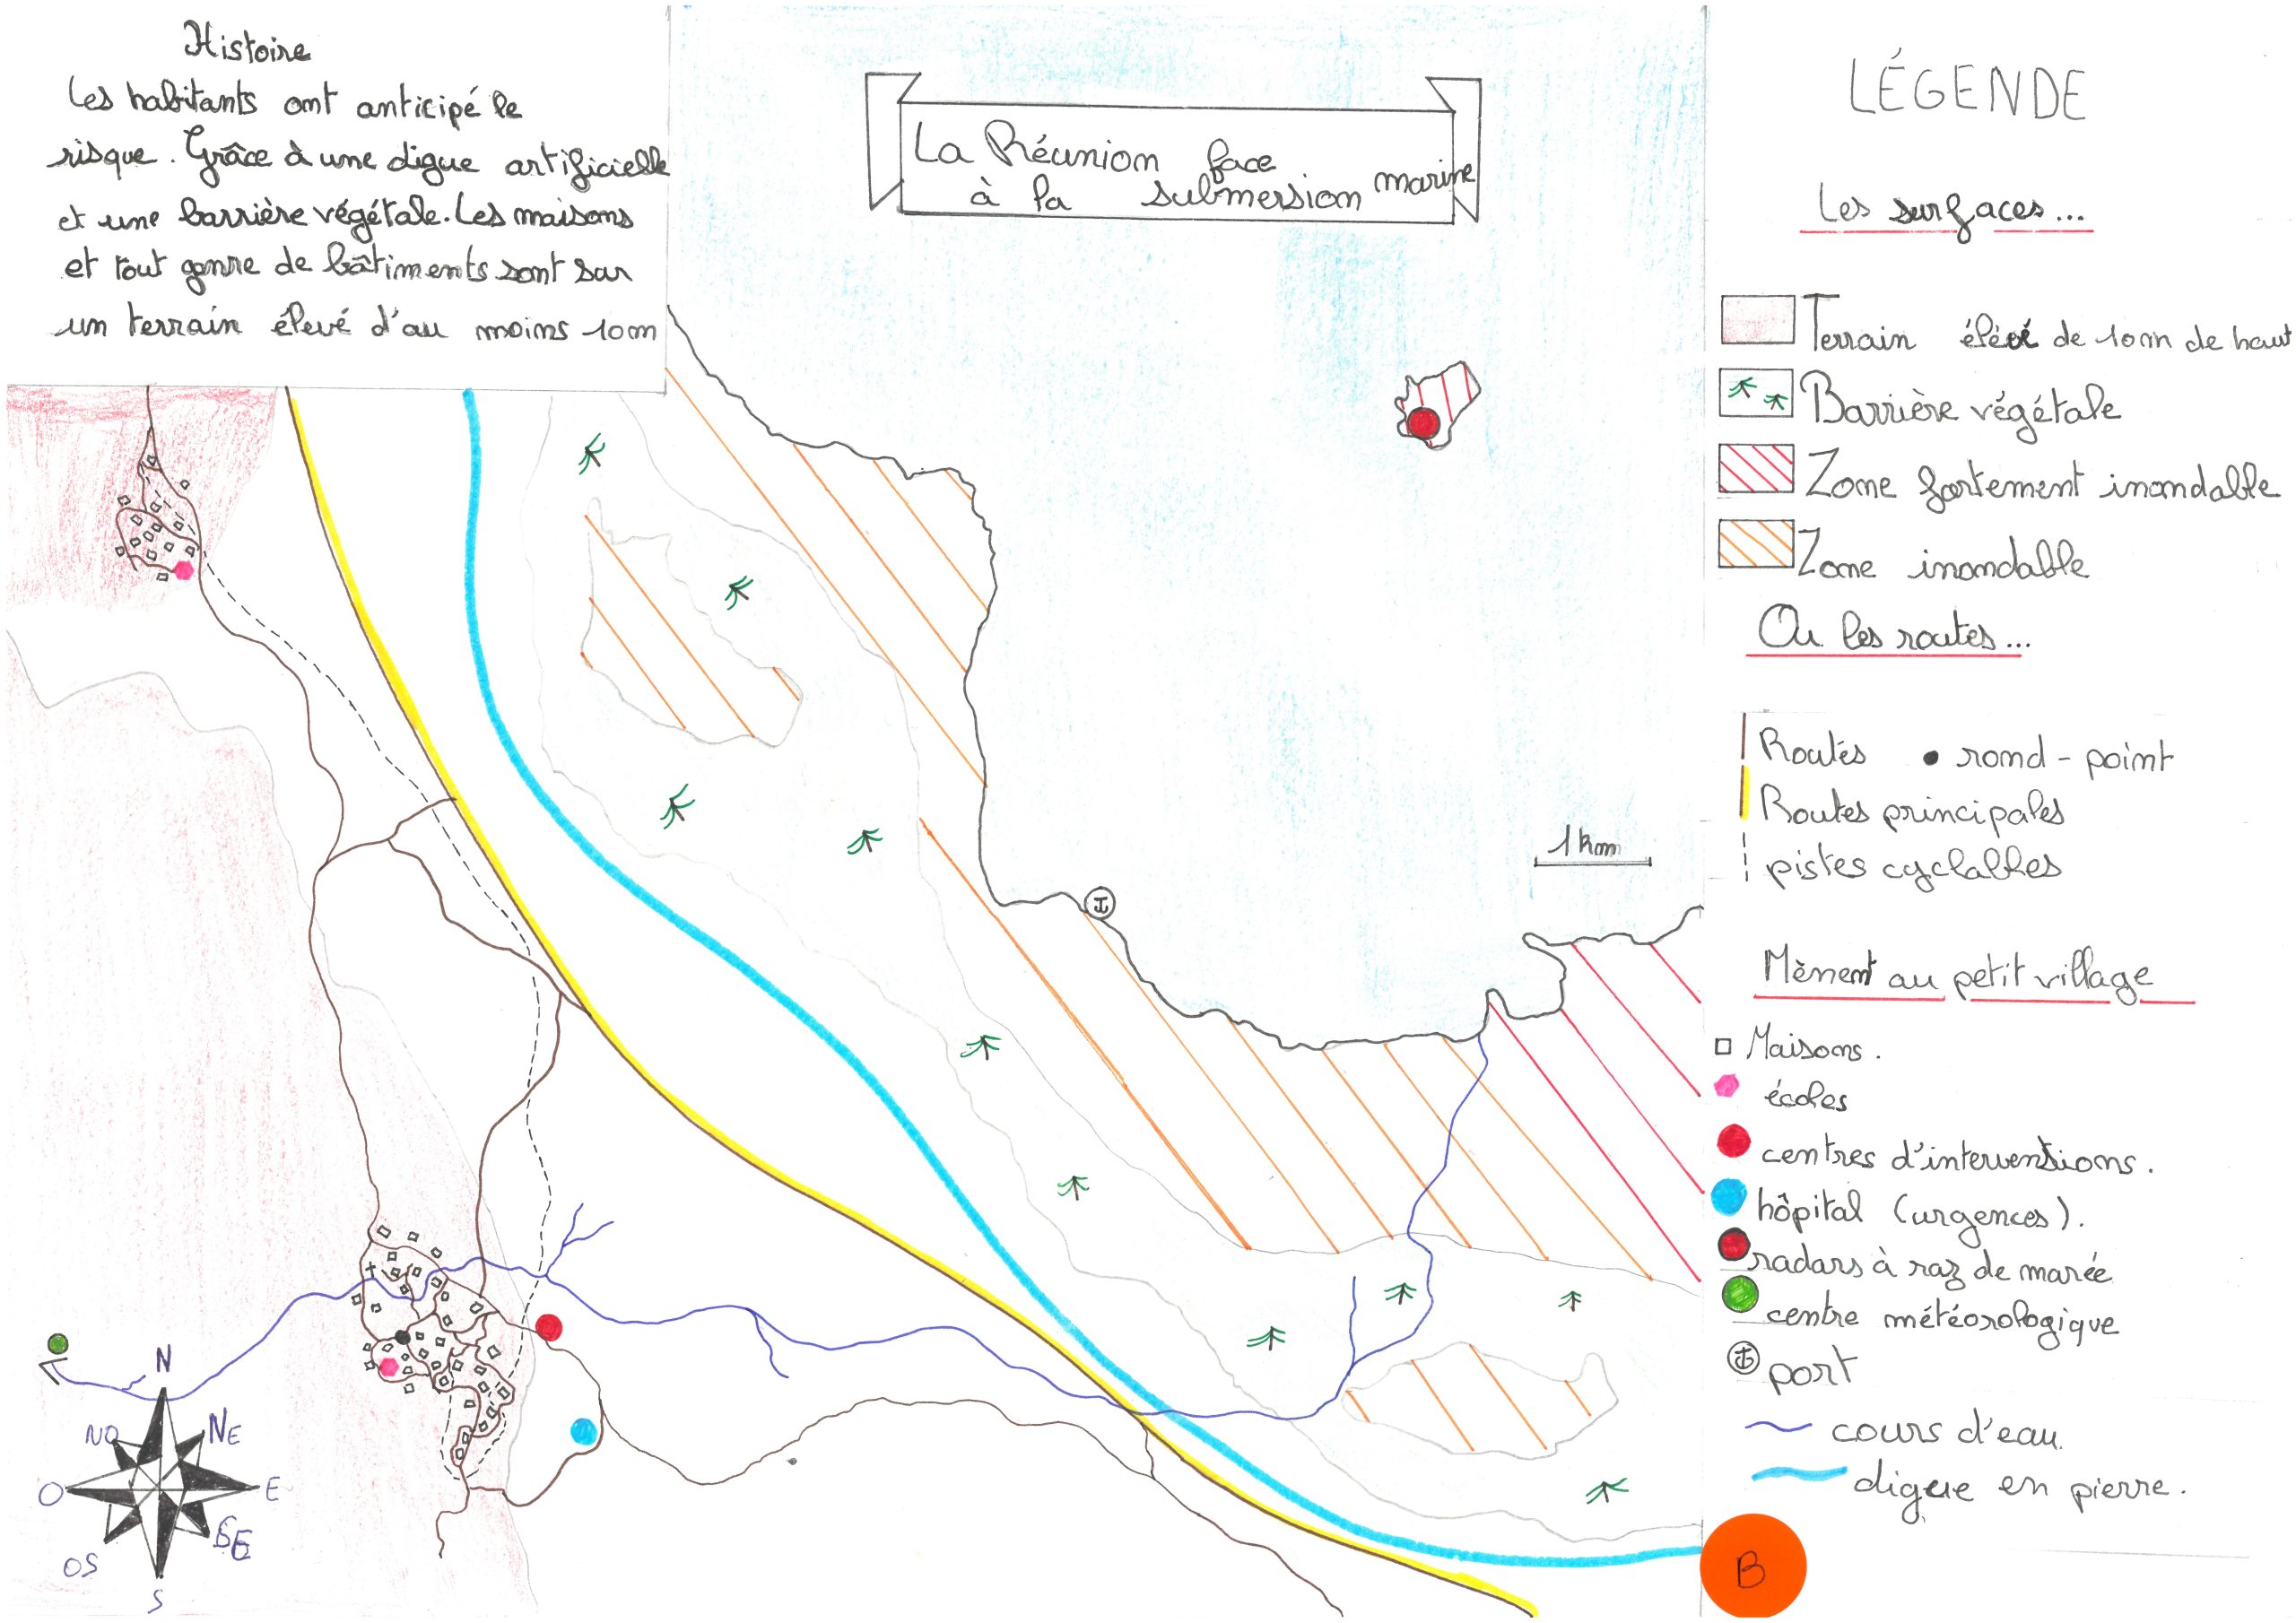 Histoire
Les habitants ont anticipé le
risque. Grâce à une digue artificielle
et une barrière végétale. Les maisons
et tout genre de bâtiments sont sur
un terrain élevé d'au moins 10m
La Réunion face
à la submersion marine
1 km
N
NO
NE
O
E
SE
OS
S
LÉGENDE
Les surfaces...
Terrain élévé de 10m de haut
Barrière végétale
Zone fortement inondable
Zone inondable
Ou les routes...
Routes
rond-point
Routes principales
pistes cyclables
Mènent au petit village
Maisons.
écoles
centres d'interventions.
hôpital (urgences).
radars à raz de marée
centre météorologique
port
cours d'eau
digue en pierre.
B